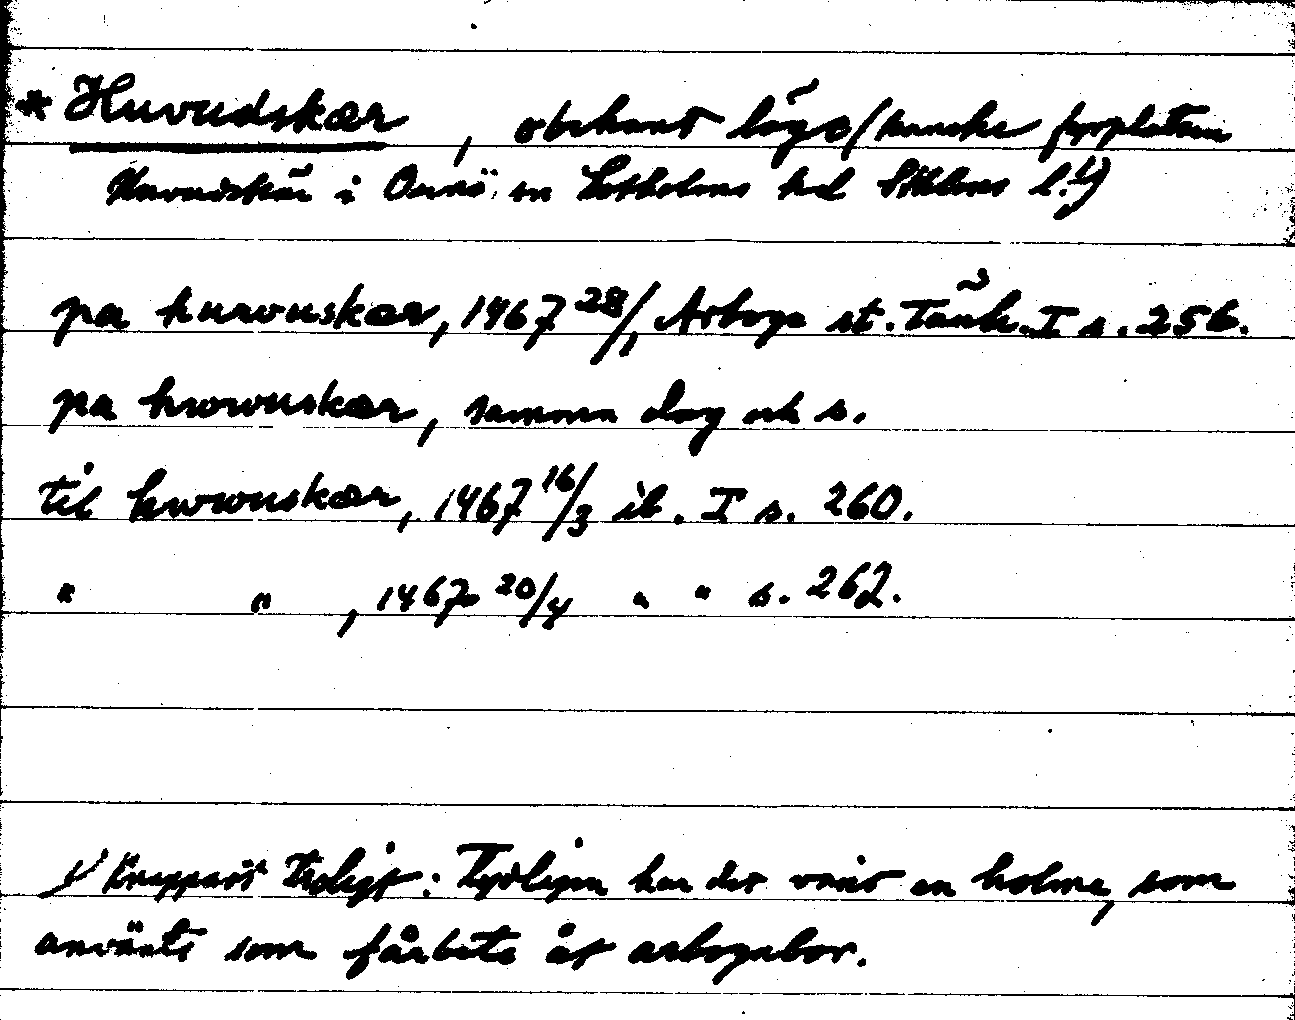 * Huvudskær, obekant läge / kanske fyrplatsen
Huvudskär i Ornö sn Sotholms hd Sthlms l. 1)
pa huwuskær, 1467 28/1 Arboga st. Tänk. I s. 256.
pa hwwuskær, samma dag och s.
til hwwuskær, 1467 16/3 ib. I s. 260.
" " , 1467 20/4 " " s. 262.
1) Knappast troligt: Tydligen har det varit en holme, som
använts som fårbete åt arbogabor.